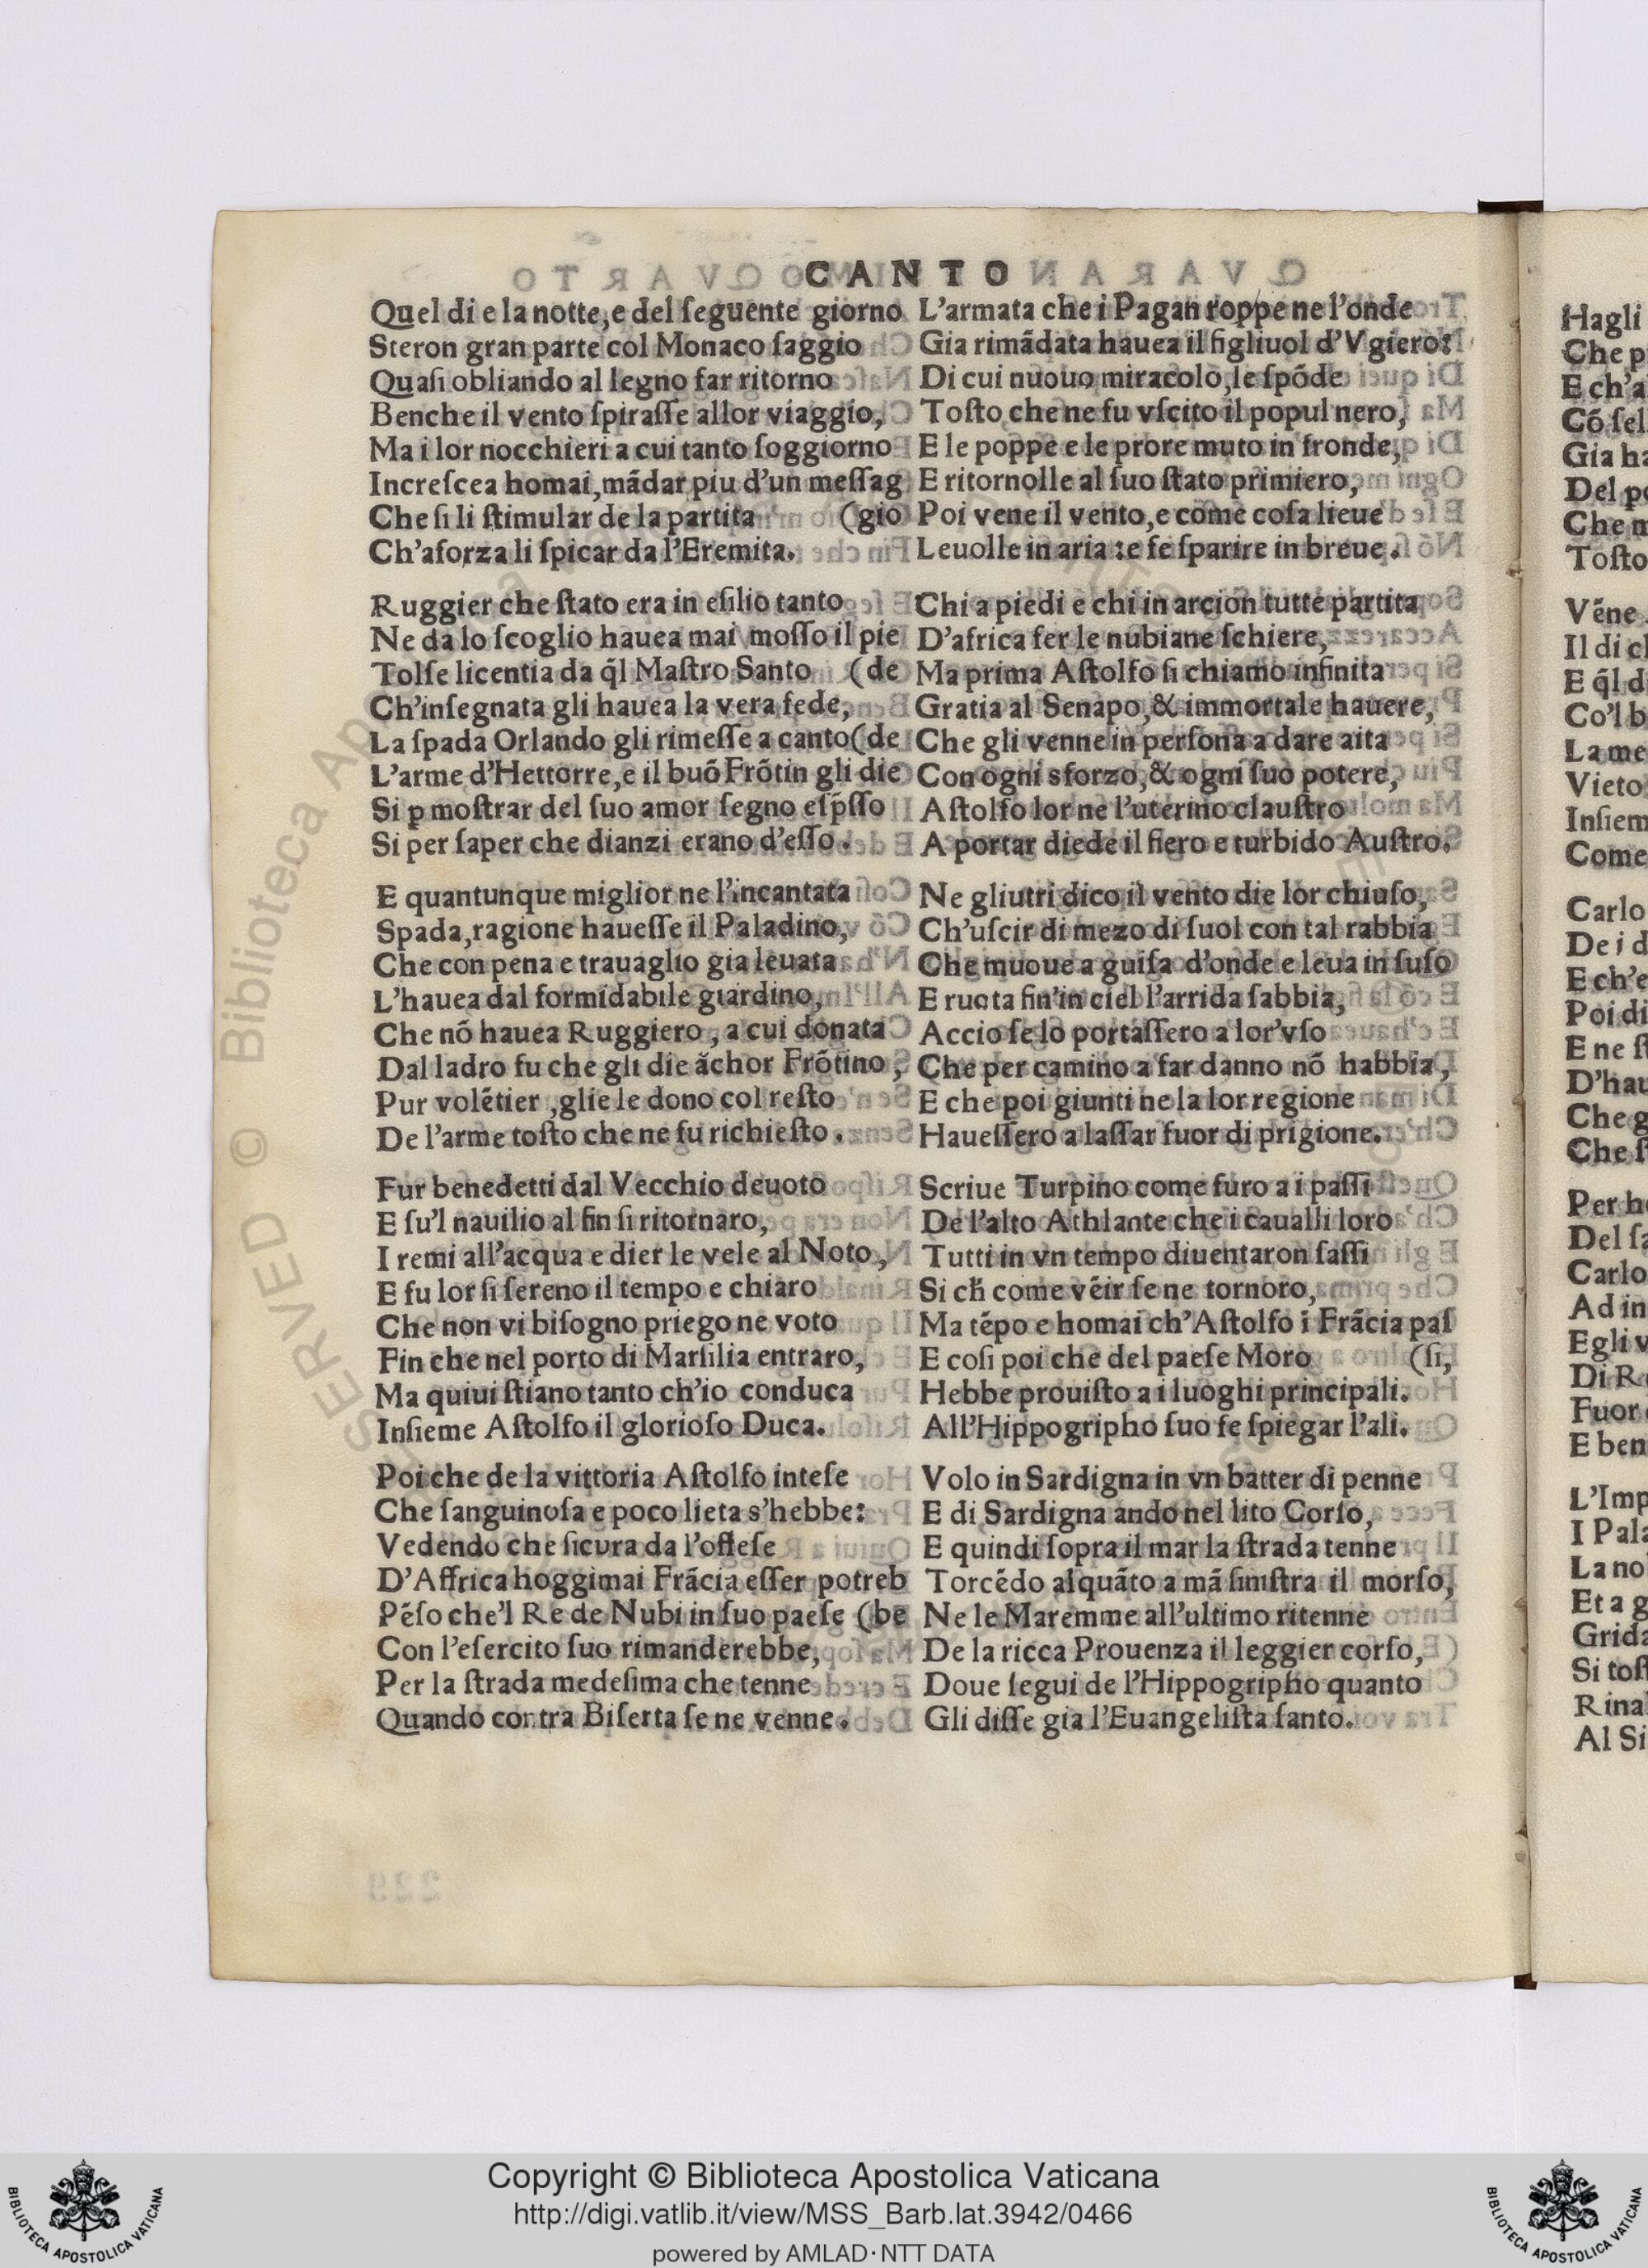 CANTO
Quel di e la notte, e del ſeguente giorno
Steron gran parte col Monaco ſaggio
Quaſi obliando al legno far ritorno
Benche il vento ſpiraſſe allor viaggio,
Ma i lor nocchieri a cui tanto ſoggiorno
Increſcea homai, mãdar piu d'un meſſag
Che ſi li ſtimular de la partita (gio
Ch'aforza li ſpicar da l'Eremita.
Ruggier che ſtato era in eſilio tanto
Ne da lo ſcoglio hauea mai moſſo il pie
Tolſe licentia da q̃l Maſtro Santo (de
Ch'inſegnata gli hauea la vera fede,
La ſpada Orlando gli rimeſſe a canto (de
L'arme d'Hettorre, e il buõ Frõtin gli die
Si ꝑ moſtrar del ſuo amor ſegno eſp̃ſſo
Si per ſaper che dianzi erano d'eſſo.
E quantunque miglior ne l'incantata
Spada, ragione haueſſe il Paladino,
Che con pena e trauaglio gia leuata
L'hauea dal formidabile giardino,
Che nõ hauea Ruggiero, a cui donata
Dal ladro fu che gli die ãchor Frõtino,
Pur volẽtier, glie le dono col reſto
De l'arme toſto che ne fu richieſto.
Fur benedetti dal Vecchio deuoto
E ſu'l nauilio al fin ſi ritornaro,
I remi all'acqua e dier le vele al Noto,
E fu lor ſi ſereno il tempo e chiaro
Che non vi biſogno priego ne voto
Fin che nel porto di Marſilia entraro,
Ma quiui ſtiano tanto ch'io conduca
Inſieme Aſtolfo il glorioſo Duca.
Poi che de la vittoria Aſtolfo inteſe
Che ſanguinoſa e poco lieta s'hebbe:
Vedendo che ſicura da l'offeſe
D'Affrica hoggimai Frãcia eſſer potreb
Pẽſo che'l Re de Nubi in ſuo paeſe (be
Con l'eſercito ſuo rimanderebbe,
Per la ſtrada medeſima che tenne
Quando contra Biſerta ſe ne venne.
L'armata che i Pagan roppe ne l'onde
Gia rimãdata hauea il figliuol d'Vgiero:
Di cui nuouo miracolo, le ſpõde
Toſto che ne fu vſcito il popul nero,
E le poppe e le prore muto in fronde,
E ritornolle al ſuo ſtato primiero,
Poi vene il vento, e come coſa lieue
Leuolle in aria: e fe ſparire in breue.
Chi a piedi e chi in arcion tutte partita
D'africa fer le nubiane ſchiere,
Ma prima Aſtolfo ſi chiamo infinita
Gratia al Senapo, & immortale hauere,
Che gli venne in perſona a dare aita
Con ogni sforzo, & ogni ſuo potere,
Aſtolfo lor ne l'uterino clauſtro
A portar diede il fiero e turbido Auſtro.
Ne gliutri dico il vento die lor chiuſo,
Ch'uſcir di mezo di ſuol con tal rabbia
Che muoue a guiſa d'onde e leua in ſuſo
E ruota fin'in ciel l'arrida ſabbia,
Accio ſe lo portaſſero a lor'vſo
Che per camino a far danno nõ habbia,
E che poi giunti ne la lor regione
Haueſſero a laſſar fuor di prigione.
Scriue Turpino come furo a i paſſi
De l'alto Athlante che i caualli loro
Tutti in vn tempo diuentaron ſaſſi
Si cħ come vẽir ſe ne tornoro,
Ma tẽpo e homai ch'Aſtolfo ĩ Frãcia paſ
E coſi poi che del paeſe Moro (ſi,
Hebbe prouiſto a i luoghi principali.
All'Hippogripho ſuo fe ſpiegar l'ali.
Volo in Sardigna in vn batter di penne
E di Sardigna ando nel lito Corſo,
E quindi ſopra il mar la ſtrada tenne
Torcẽdo alquãto a mã ſiniſtra il morſo,
Ne le Maremme all'ultimo ritenne
De la ricca Prouenza il leggier corſo,
Doue ſegui de l'Hippogripho quanto
Gli diſſe gia l'Euangeliſta ſanto.
Hagli
Che p
E ch'a
Cõ ſel
Gia ha
Del po
Che m
Toſto
Vẽne
Il di cl
E q̃l d
Co'l b
La me
Vieto
Inſiem
Come
Carlo
De i d
E ch'e
Poi di
E ne ſt
D'hau
Che g
Che ſ
Per ho
Del ſa
Carlo
Ad in
Egli v
Di R
Fuor
E ben
L'Imp
I Pala
La no
Et a g
Grida
Si toſt
Rina
Al Si
© Biblioteca Ap
SERVED
Copyright © Biblioteca Apostolica Vaticana
http://digi.vatlib.it/view/MSS_Barb.lat.3942/0466
powered by AMLAD·NTT DATA
BIBLIOTECA APOSTOLICA VATICANA
BIBLIOTECA APOSTOLICA VATICANA